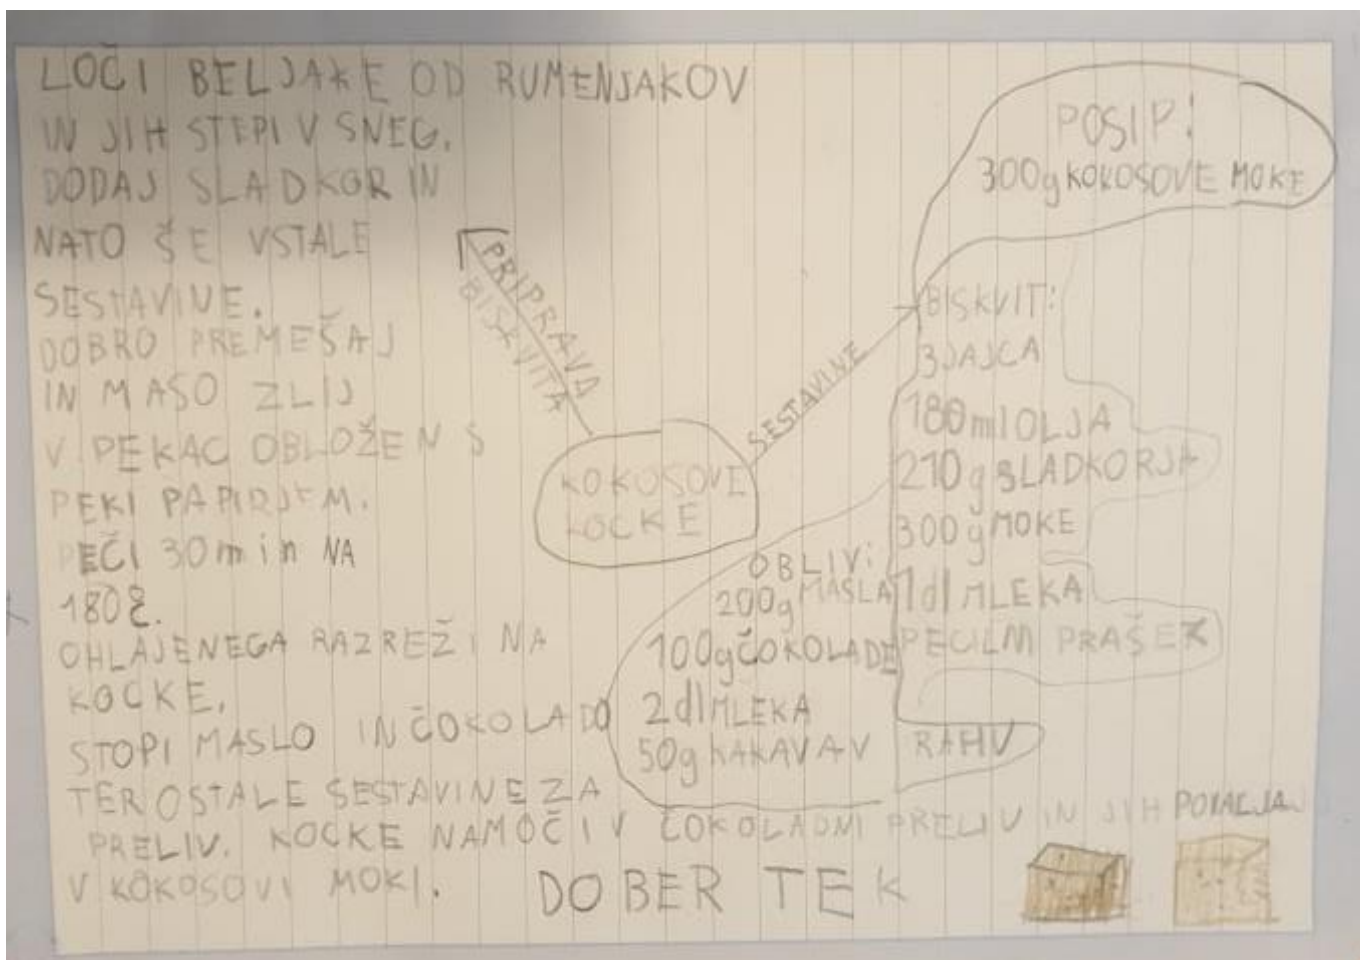 LOČI BELJAKE OD RUMENJAKOV
IN JIH STEPI V SNEG.
DODAJ SLADKOR IN
NATO ŠE VSTALE
SESTAVINE.
DOBRO PREMEŠAJ
IN MASO ZLIJ
V PEKAC OBLOŽEN S
PEKI PAPIRJEM.
PEČI 30 min NA
180
OHLAJENEGA RAZREŽI NA
KOCKE.
STOPI MASLO IN ČOKOLADO
TER OSTALE SESTAVINE ZA
PRELIV. KOCKE NAMOČI V ČOKOLADNI PRELIV IN JIH POVALJAJ
V KOKOSOVI MOKI.
DOBER TEK
PRIPRAVA
BISKVITA
KOKOSOVE
KOCKE
SESTAVINE
POSIP:
300g KOKOSOVE MOKE
BISKVIT:
3 JAJCA
180 ml OLJA
210 g SLADKORJA
300 g MOKE
1 dl MLEKA
PECILNI PRAŠEK
RAHV
OBLIV:
200g MASLA
100g ČOKOLADE
2 dl MLEKA
50g KAKAVAV